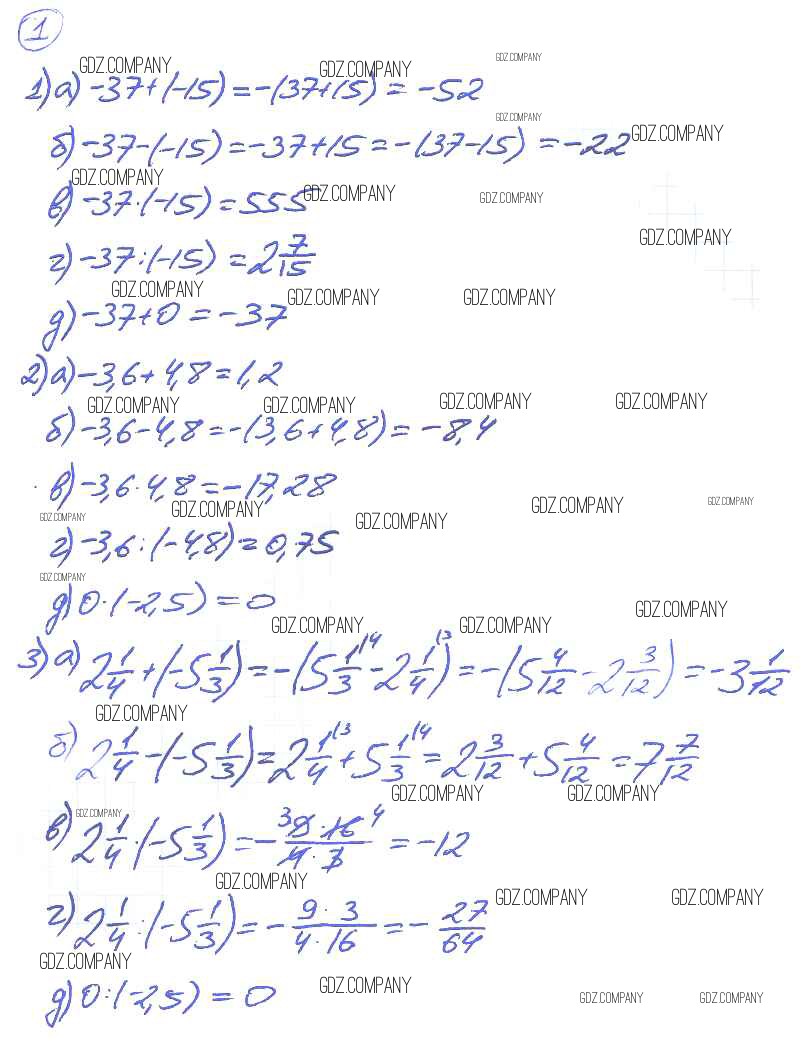 1
GDZ.COMPANY GDZ.COMPANY GDZ.COMPANY
1) а) -37+(-15) = -(37+15) = -52
GDZ.COMPANY
б) -37-(-15) = -37+15 = -(37-15) = -22 GDZ.COMPANY
GDZ.COMPANY GDZ.COMPANY GDZ.COMPANY
в) -37·(-15) = 555
GDZ.COMPANY
г) -37:(-15) = 2 7/15
GDZ.COMPANY GDZ.COMPANY GDZ.COMPANY
д) -37+0 = -37
2) а) -3,6+4,8 = 1,2
GDZ.COMPANY GDZ.COMPANY GDZ.COMPANY GDZ.COMPANY
б) -3,6-4,8 = -(3,6+4,8) = -8,4
в) -3,6·4,8 = -17,28
GDZ.COMPANY GDZ.COMPANY GDZ.COMPANY GDZ.COMPANY GDZ.COMPANY
г) -3,6:(-4,8) = 0,75
GDZ.COMPANY
д) 0·(-2,5) = 0
GDZ.COMPANY GDZ.COMPANY GDZ.COMPANY
3) а) 2 1/4 + (-5 1/3) = -(5 1/3 (4 - 2 1/4 (3) = -(5 4/12 - 2 3/12) = -3 1/12
GDZ.COMPANY
б) 2 1/4 - (-5 1/3) = 2 1/4 (3 + 5 1/3 (4 = 2 3/12 + 5 4/12 = 7 7/12
GDZ.COMPANY GDZ.COMPANY
GDZ.COMPANY
в) 2 1/4 · (-5 1/3) = - 3 9·16 4 / 4·3 = -12
GDZ.COMPANY GDZ.COMPANY GDZ.COMPANY
г) 2 1/4 : (-5 1/3) = - 9·3/4·16 = - 27/64
GDZ.COMPANY GDZ.COMPANY
д) 0:(-2,5) = 0
GDZ.COMPANY GDZ.COMPANY